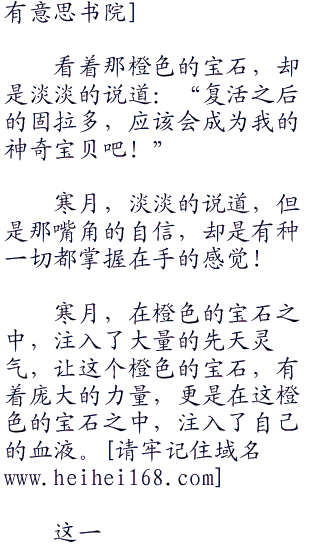 有意思书院]
看着那橙色的宝石，却
是淡淡的说道：“复活之后
的固拉多，应该会成为我的
神奇宝贝吧！”
寒月，淡淡的说道，但
是那嘴角的自信，却是有种
一切都掌握在手的感觉！
寒月，在橙色的宝石之
中，注入了大量的先天灵
气，让这个橙色的宝石，有
着庞大的力量，更是在这橙
色的宝石之中，注入了自己
的血液。[请牢记住域名
www.heihei168.com]
这一